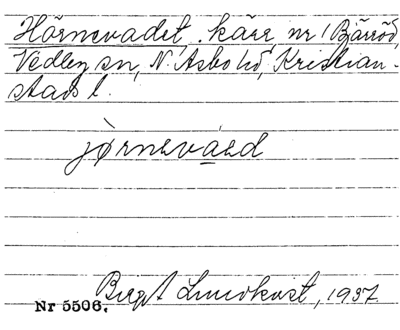 Hörnevadet, kärr, nr 1 Bärröd,
Vedby sn, N. Åsbo hd, Kristian-
stads l.
jò̧rnevaed
Birgit Lundkvist, 1937
Nr 5506.